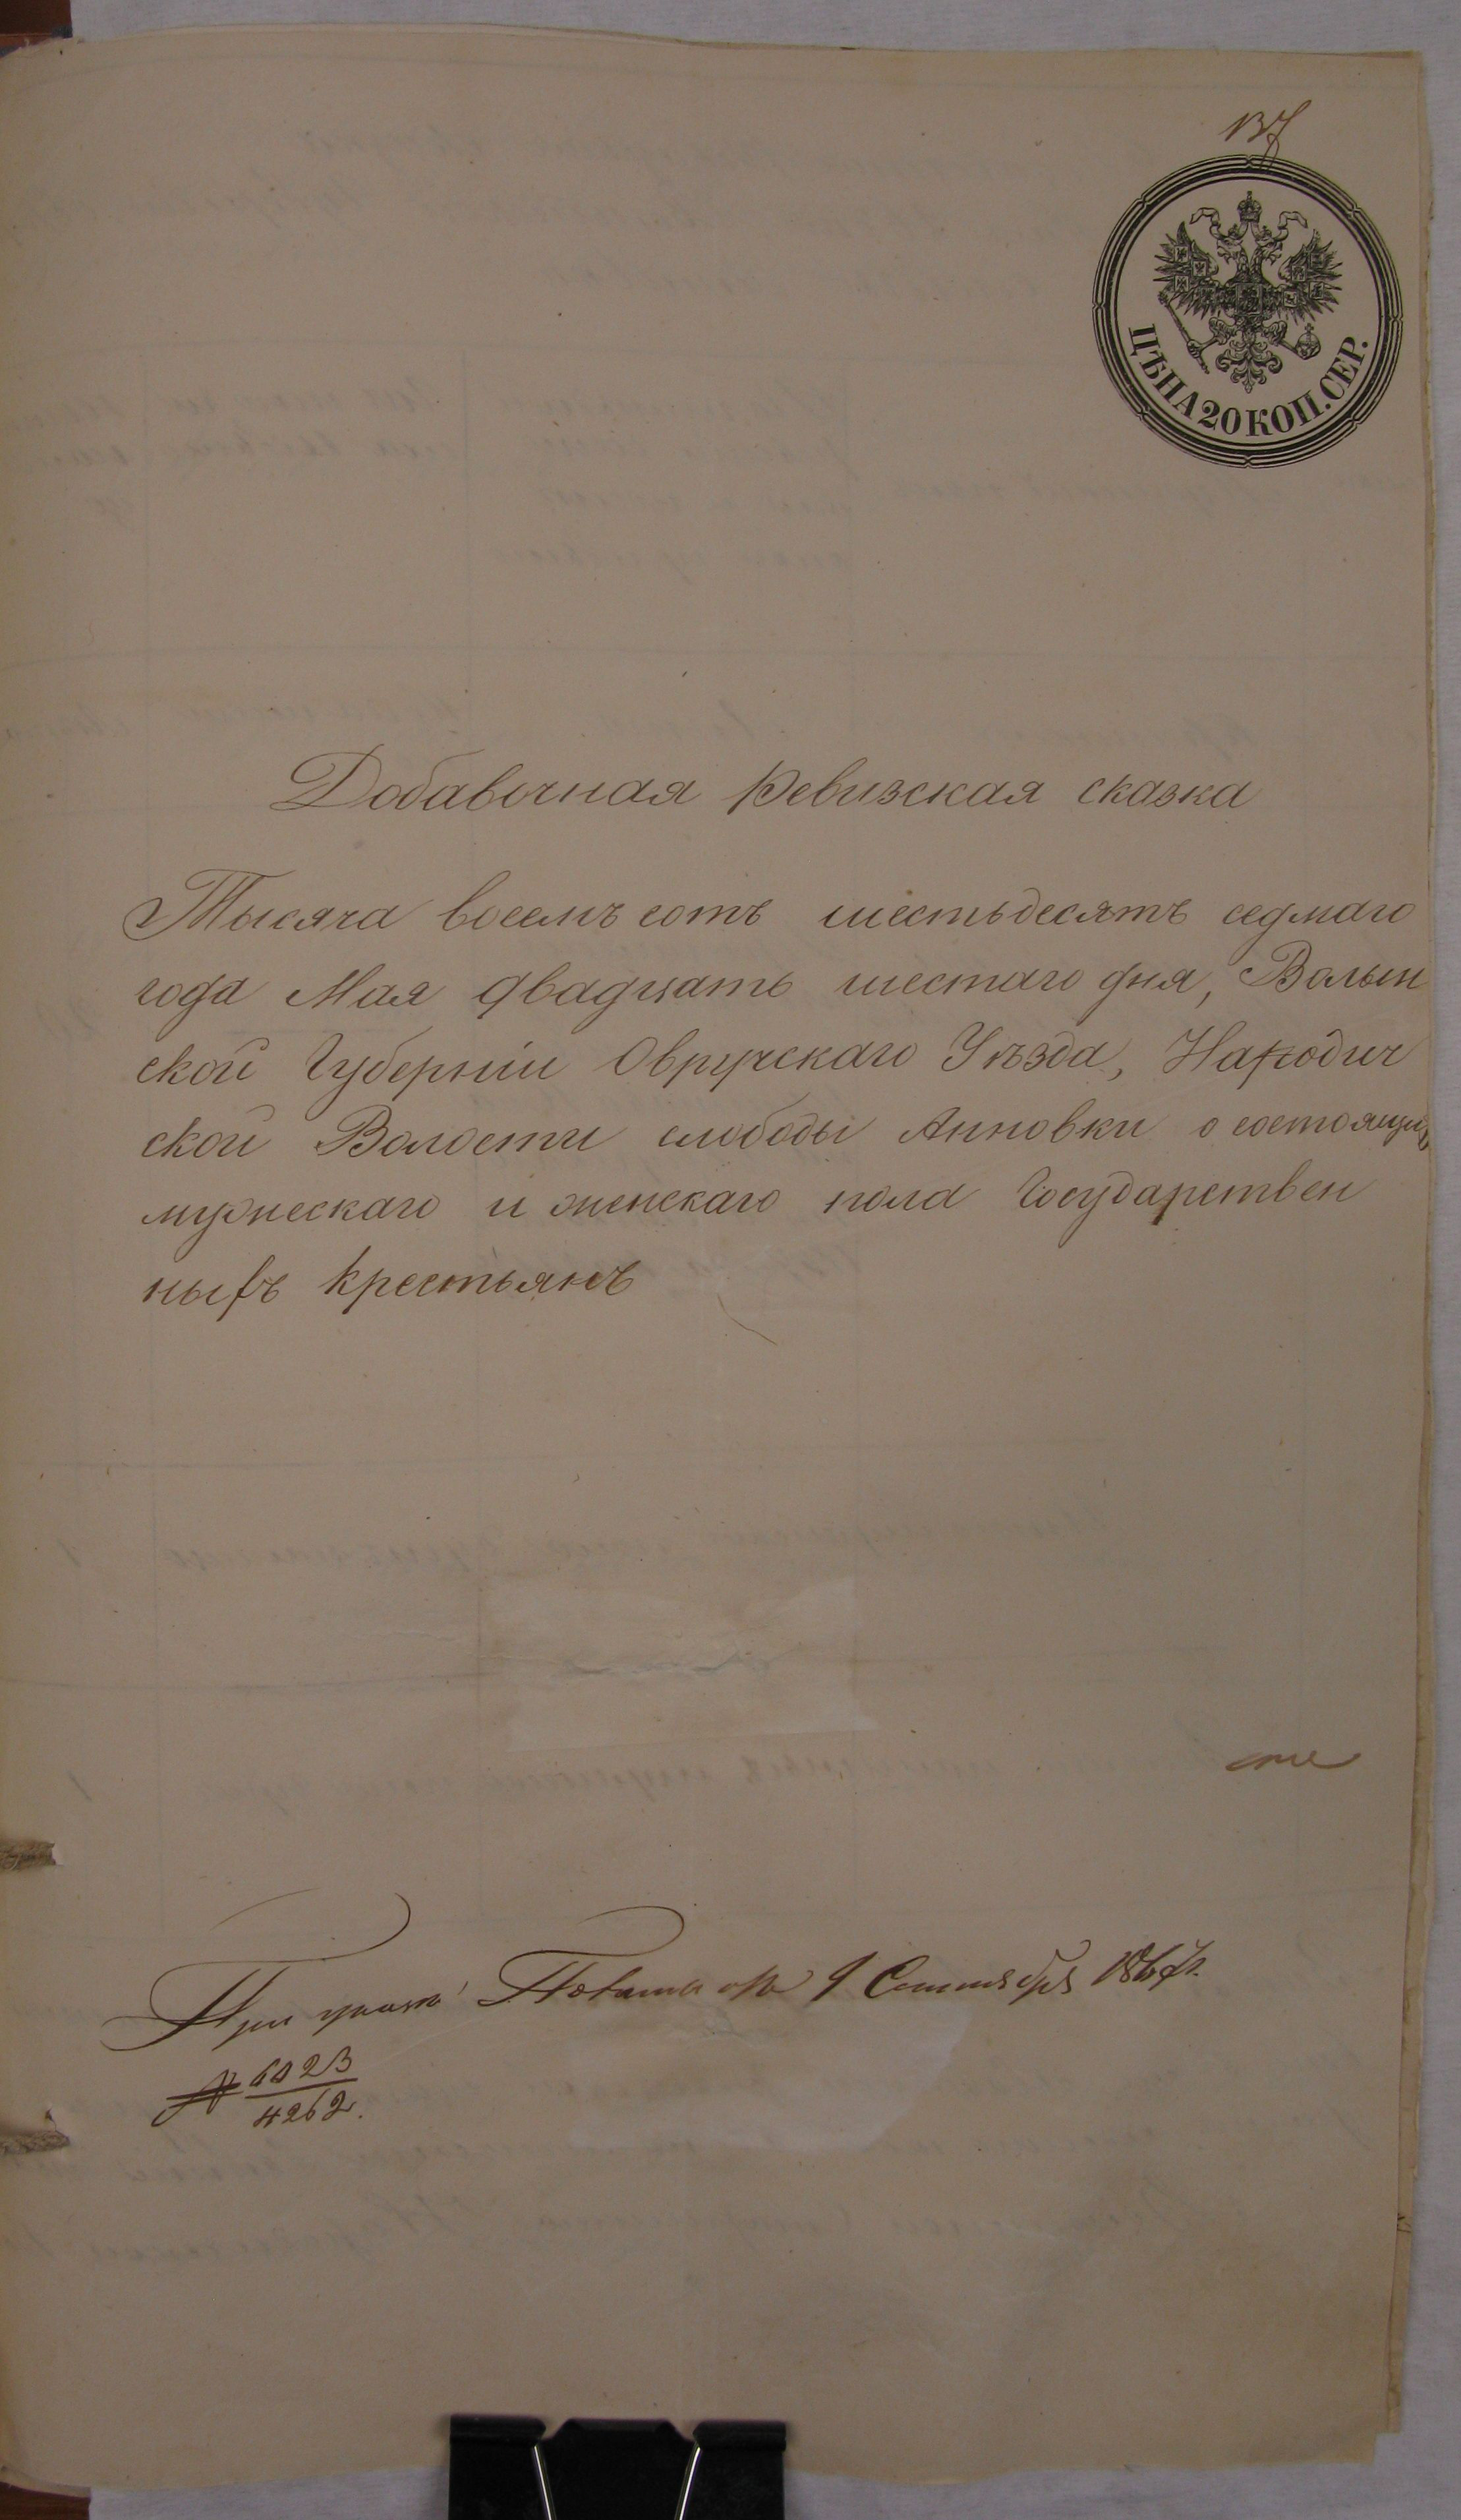 137
ЦѢНА 20 КОП. СЕР.
Добавочная Ревизская сказка
Тысяча восемъ сотъ шестьдесятъ седмаго
года Мая двадцать шестаго дня, Волын
ской Губерніи Овручскаго Уѣзда, Народич
ской Волости слободы Анновки о состоящихъ
мужескаго и женскаго пола Государствен
ныхъ крестьянъ
При указѣ Палаты отъ 9 Сентября 1867 г.
№ 6023
4262.